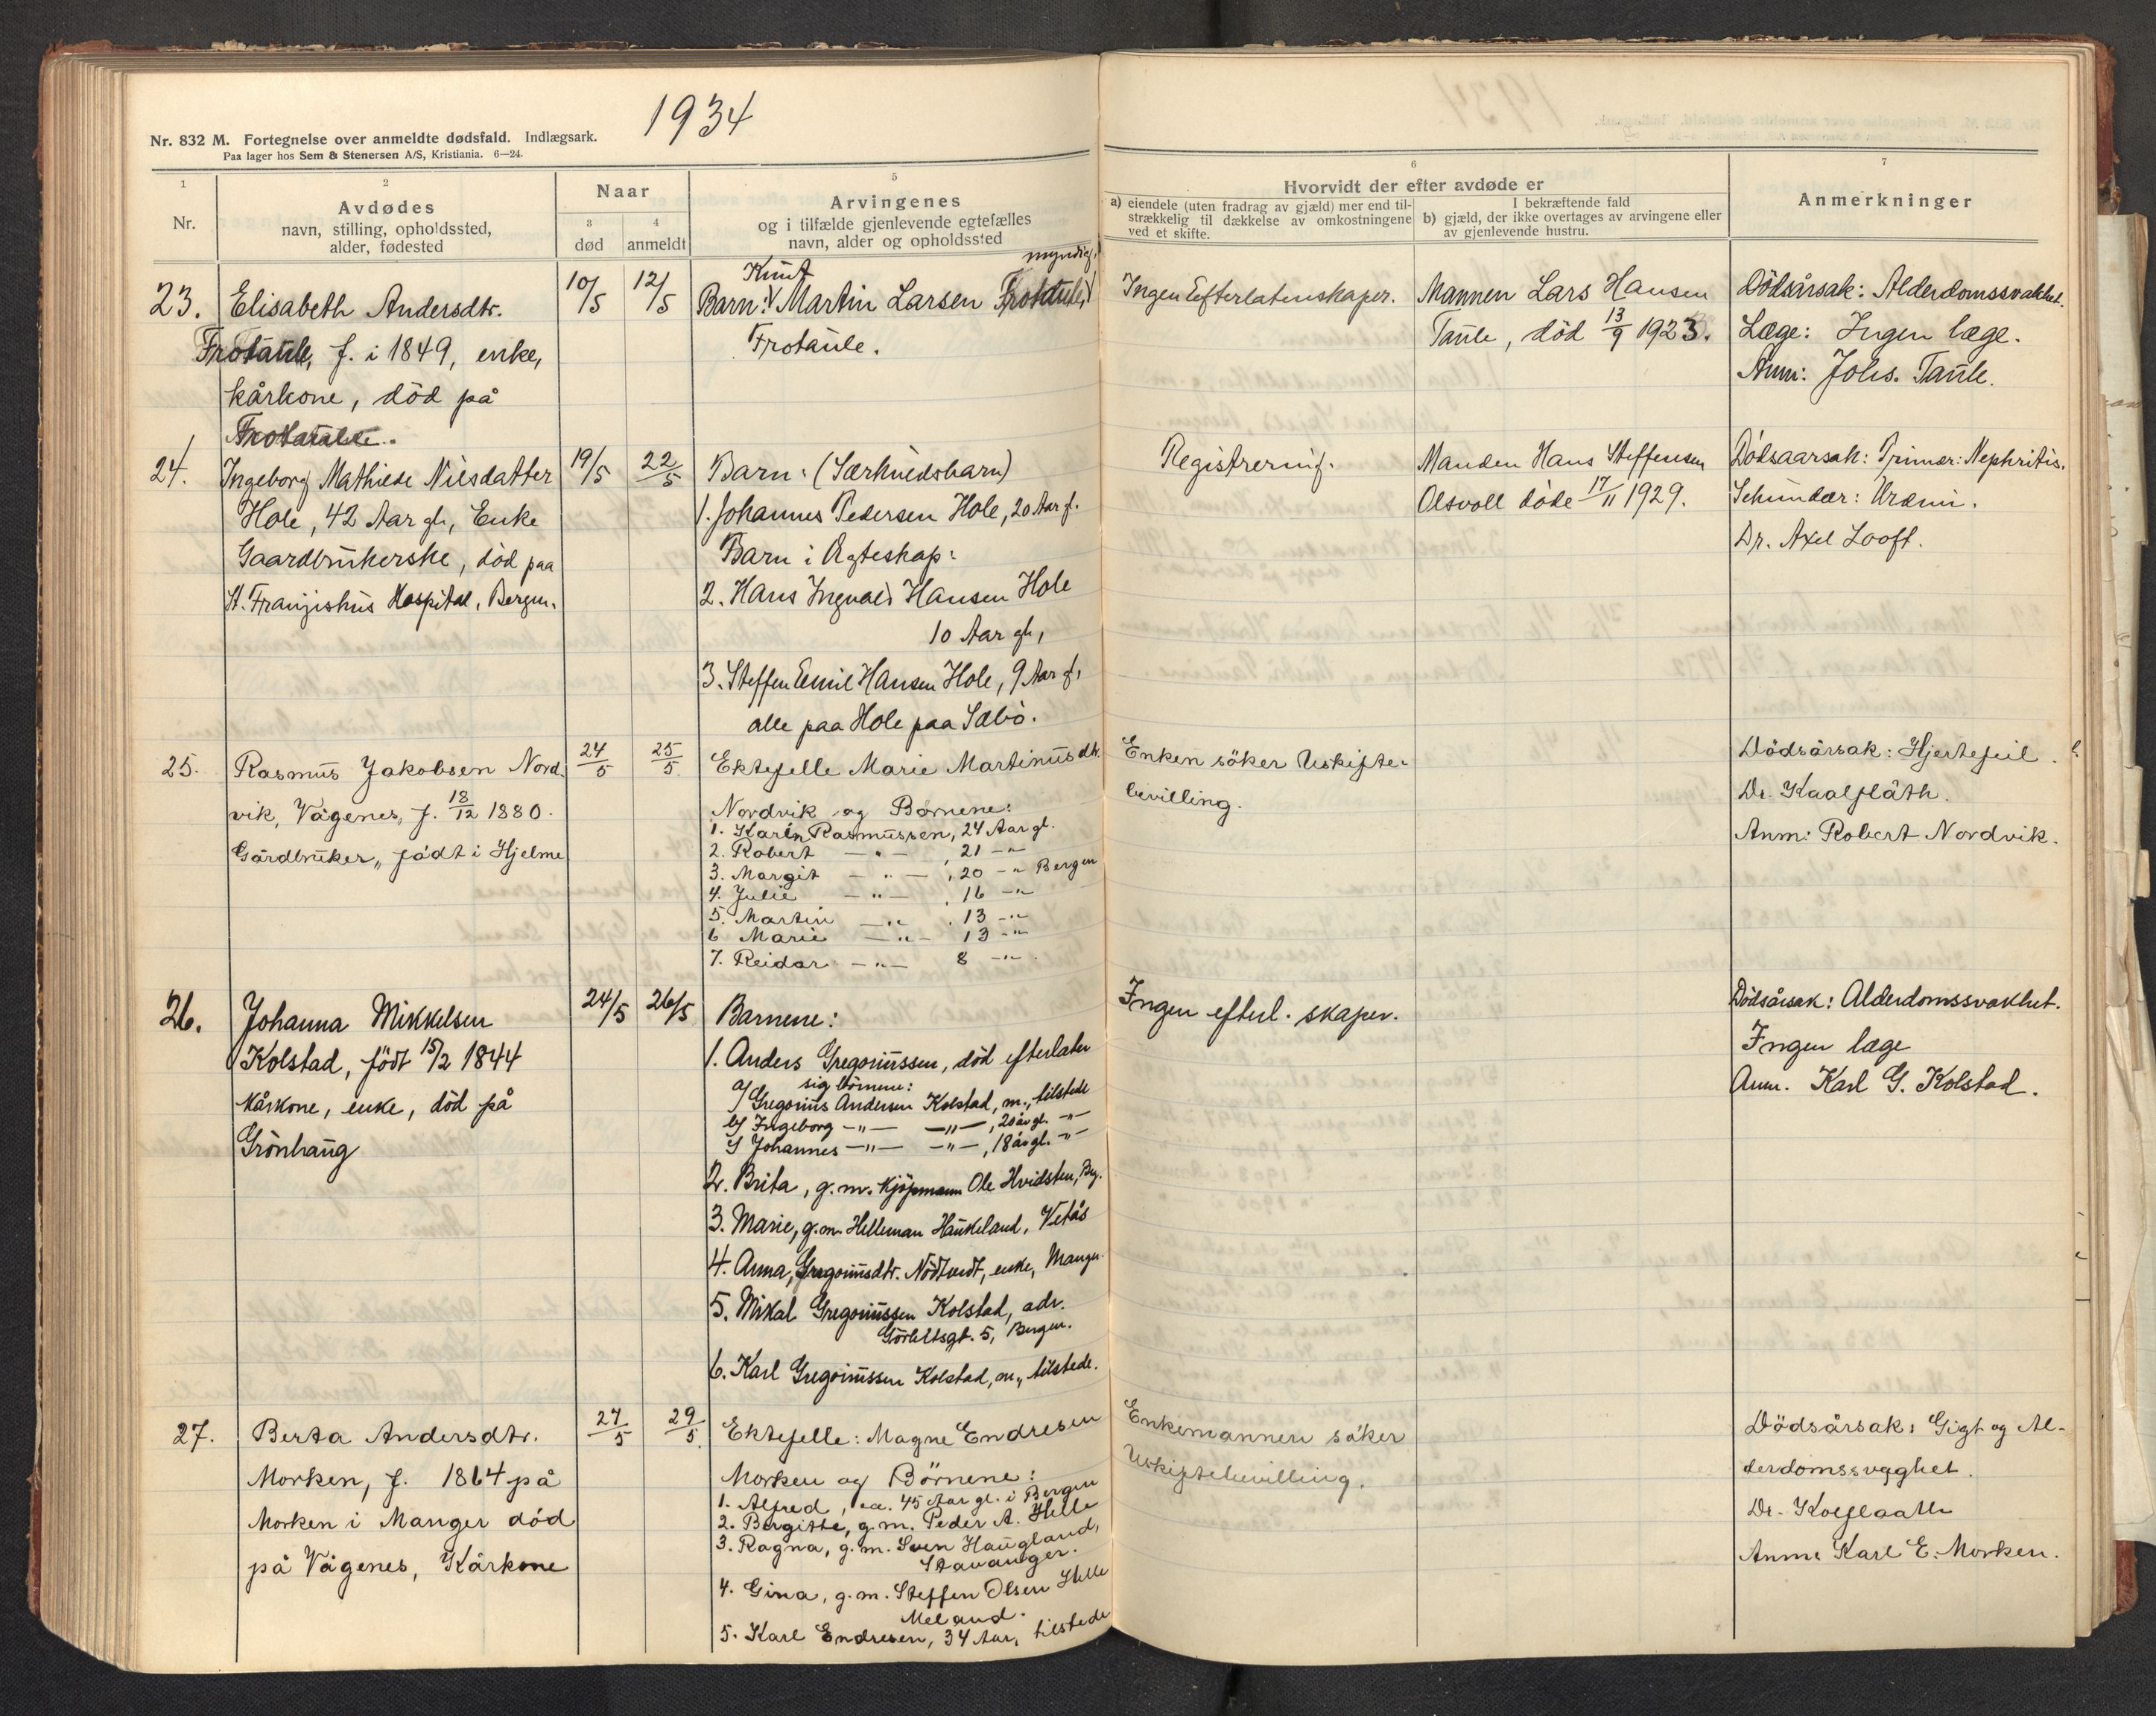 1934
Nr. 832 M. Fortegnelse over anmeldte dødsfald. Indlægsark.
Paa lager hos Sem & Stenersen A/S, Kristiania. 6—24.
1
Nr.
2
Avdødes
navn, stilling, opholdssted,
alder, fødested
Naar
3
død
4
anmeldt
5
Arvingenes
og i tilfælde gjenlevende egtefælles
navn, alder og opholdssted
6
Hvorvidt der efter avdøde er
a) eiendele (uten fradrag av gjæld) mer end til-
strækkelig til dækkelse av omkostningene
ved et skifte.
I bekræftende fald
b) gjæld, der ikke overtages av arvingene eller
av gjenlevende hustru.
7
Anmerkninger
23.
Elisabeth Andersdtr.
Frotaule, f. i 1849, enke,
kårkone, död på
Frotaule.
10/5
12/5
Knut myndig,
Barn: Martin Larsen Frotaule,
Frotaule.
Ingen Efterlatenskaper.
Mannen Lars Hansen
Taule, död 13/9 1923.
Dödsårsak: Alderdomssvakhet.
Læge: Ingen læge.
Anm: Johs. Taule.
24.
Ingeborg Mathilde Nilsdatter
Hole, 42 Aar gl, Enke
Gaardbrukerske, död paa
St. Franziskus Hospital, Bergen.
19/5
22/5
Barn: (Særkuldsbarn)
1. Johannes Pedersen Hole, 20 Aar g.
Barn i Ægteskap:
2. Hans Ingvald Hansen Hole
10 Aar gl,
3. Steffen Emil Hansen Hole, 9 Aar g,
alle paa Hole paa Sæbö.
Registrering.
Manden Hans Steffensen
Olsvoll döde 17/11 1929.
Dödsaarsak: Primær: Nephritis.
Sekundær: Urämi.
Dr. Axel Looft.
25.
Rasmus Jakobsen Nord-
vik, Vågenes, f. 18/12 1880.
Gårdbruker, födt i Hjelme
24/5
25/5
Ektefelle Marie Martinusdtr.
Nordvik og Barnene:
1. Karen Rasmussen, 24 Aar gl.
2. Robert —"— , 21 —"
3. Margit —"— , 20 —" Bergen
4. Julie —"— , 16 —"
5. Martin —"— , 13 —"
6 Marie —"— 13 —"
7. Reidar —"— 8 —"
Enken söker Uskifte-
bevilling.
Dödsårsak: Hjertefeil.
Dr. Kaalfläth.
Anm: Robert Nordvik.
26.
Johanna Mikkelsen
Kolstad, födt 15/2 1844
kårkone, enke, död på
Grönhaug
24/5
26/5
Barnene:
1. Anders Gregoriussen, död efterlater
sig börnene:
a/ Gregorius Andersen Kolstad, m., tilstede
b/ Ingeborg —"— —"—, 20 år gl. —"—
c/ Johannes —"— —"—, 18 år gl. —"—
2. Brita, g. m. kjöpmann Ole Hvidsten, Bg.
3. Marie, g. m. Helleman Haukeland, Vetås
4. Anna, Gregoriusdtr. Nödtvedt, enke, Manger.
5. Mikal Gregoriussen Kolstad, adr.
Görbitsgt. 5, Bergen.
6. Karl Gregoriussen Kolstad, m., tilstede.
Ingen efterl. skaper.
Dödsårsak: Alderdomssvakhet.
Ingen læge
Anm. Karl G. Kolstad.
27.
Berta Andersdtr.
Morken, f. 1864 på
Morken i Manger död
på Vågenes, Kårkone
27/5
29/5
Ektefelle: Magne Endresen
Morken og Börnene:
1. Alfred, ca. 45 Aar gl. i Bergen
2. Bergitte, g. m. Peder A. Helle
3. Ragna, g. m. Sven Haugland,
Stavanger.
4. Gina, g. m. Steffen Olsen Helle
Meland.
5. Karl Endresen, 34 Aar, tilstede
Enkemannen söker
Uskiftebevilling.
Dödsårsak: Gigt og Al-
derdomssvaghet.
Dr. Kolflaath
Anm: Karl E. Morken.